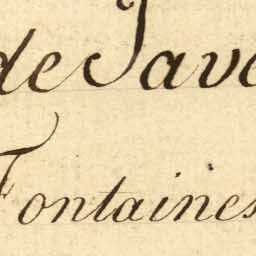 de Jave
Fontaines